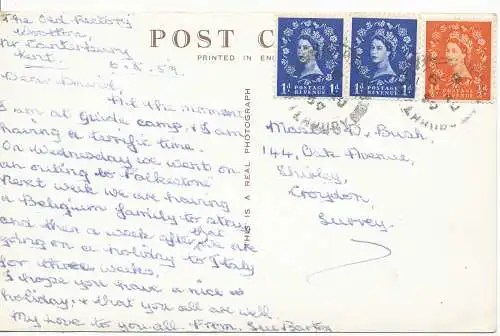 The Old Rectory
Wootton,
Nr. Canterbury
Kent.
6.8.59.
Dear David,
At the moment
I am at Guide camp, & I am
having a terrific time.
On Wednesday we went on
an outing to Folkestone
Next week we are having
a Belgium family to stay
and then a week after that we are
going on a holiday to Italy
for three weeks.
I hope you have a nice
holiday, & that you all are well.
My love to you all. From, Sue Barton
POST C
PRINTED IN EN
THIS IS A REAL PHOTOGRAPH
POSTAGE REVENUE
1d 1d
POSTAGE REVENUE
1d 1d
POSTAGE REVENUE
Master D. Bush,
144, Oak Avenue,
Shirley,
Croydon,
Surrey.